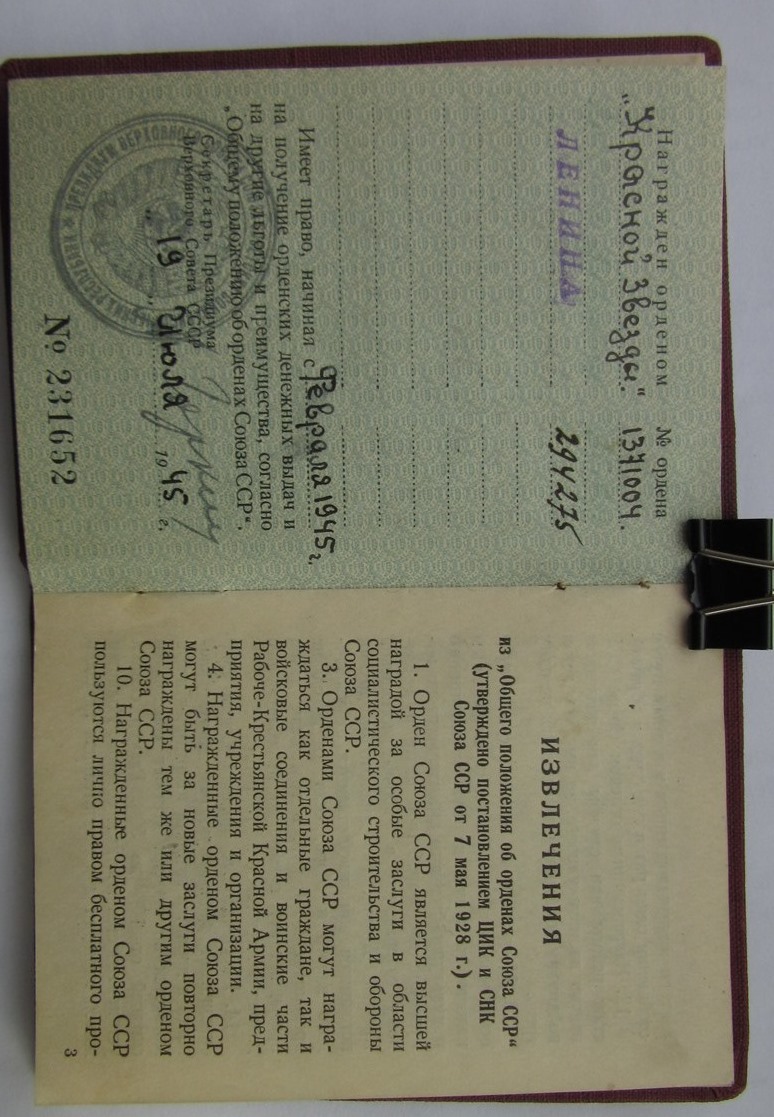 Награжден орденом № ордена
„Красной Звезды." 1371004.
ЛЕНИНА 294275
Имеет право, начиная с Февраля 1945 г.
на получение орденских денежных выдач и
на другие льготы и преимущества, согласно
„Общему положению об орденах Союза ССР".
Секретарь Президиума
Верховного Совета СССР
„19" Июля 1945 г.
№ 231652
ИЗВЛЕЧЕНИЯ
из „Общего положения об орденах Союза ССР"
(утверждено постановлением ЦИК и СНК
Союза ССР от 7 мая 1928 г.).
1. Орден Союза ССР является высшей
наградой за особые заслуги в области
социалистического строительства и обороны
Союза ССР.
3. Орденами Союза ССР могут награ-
ждаться как отдельные граждане, так и
войсковые соединения и воинские части
Рабоче-Крестьянской Красной Армии, пред-
приятия, учреждения и организации.
4. Награжденные орденом Союза ССР
могут быть за новые заслуги повторно
награждены тем же или другим орденом
Союза ССР.
10. Награжденные орденом Союза ССР
пользуются лично правом бесплатного про-
3